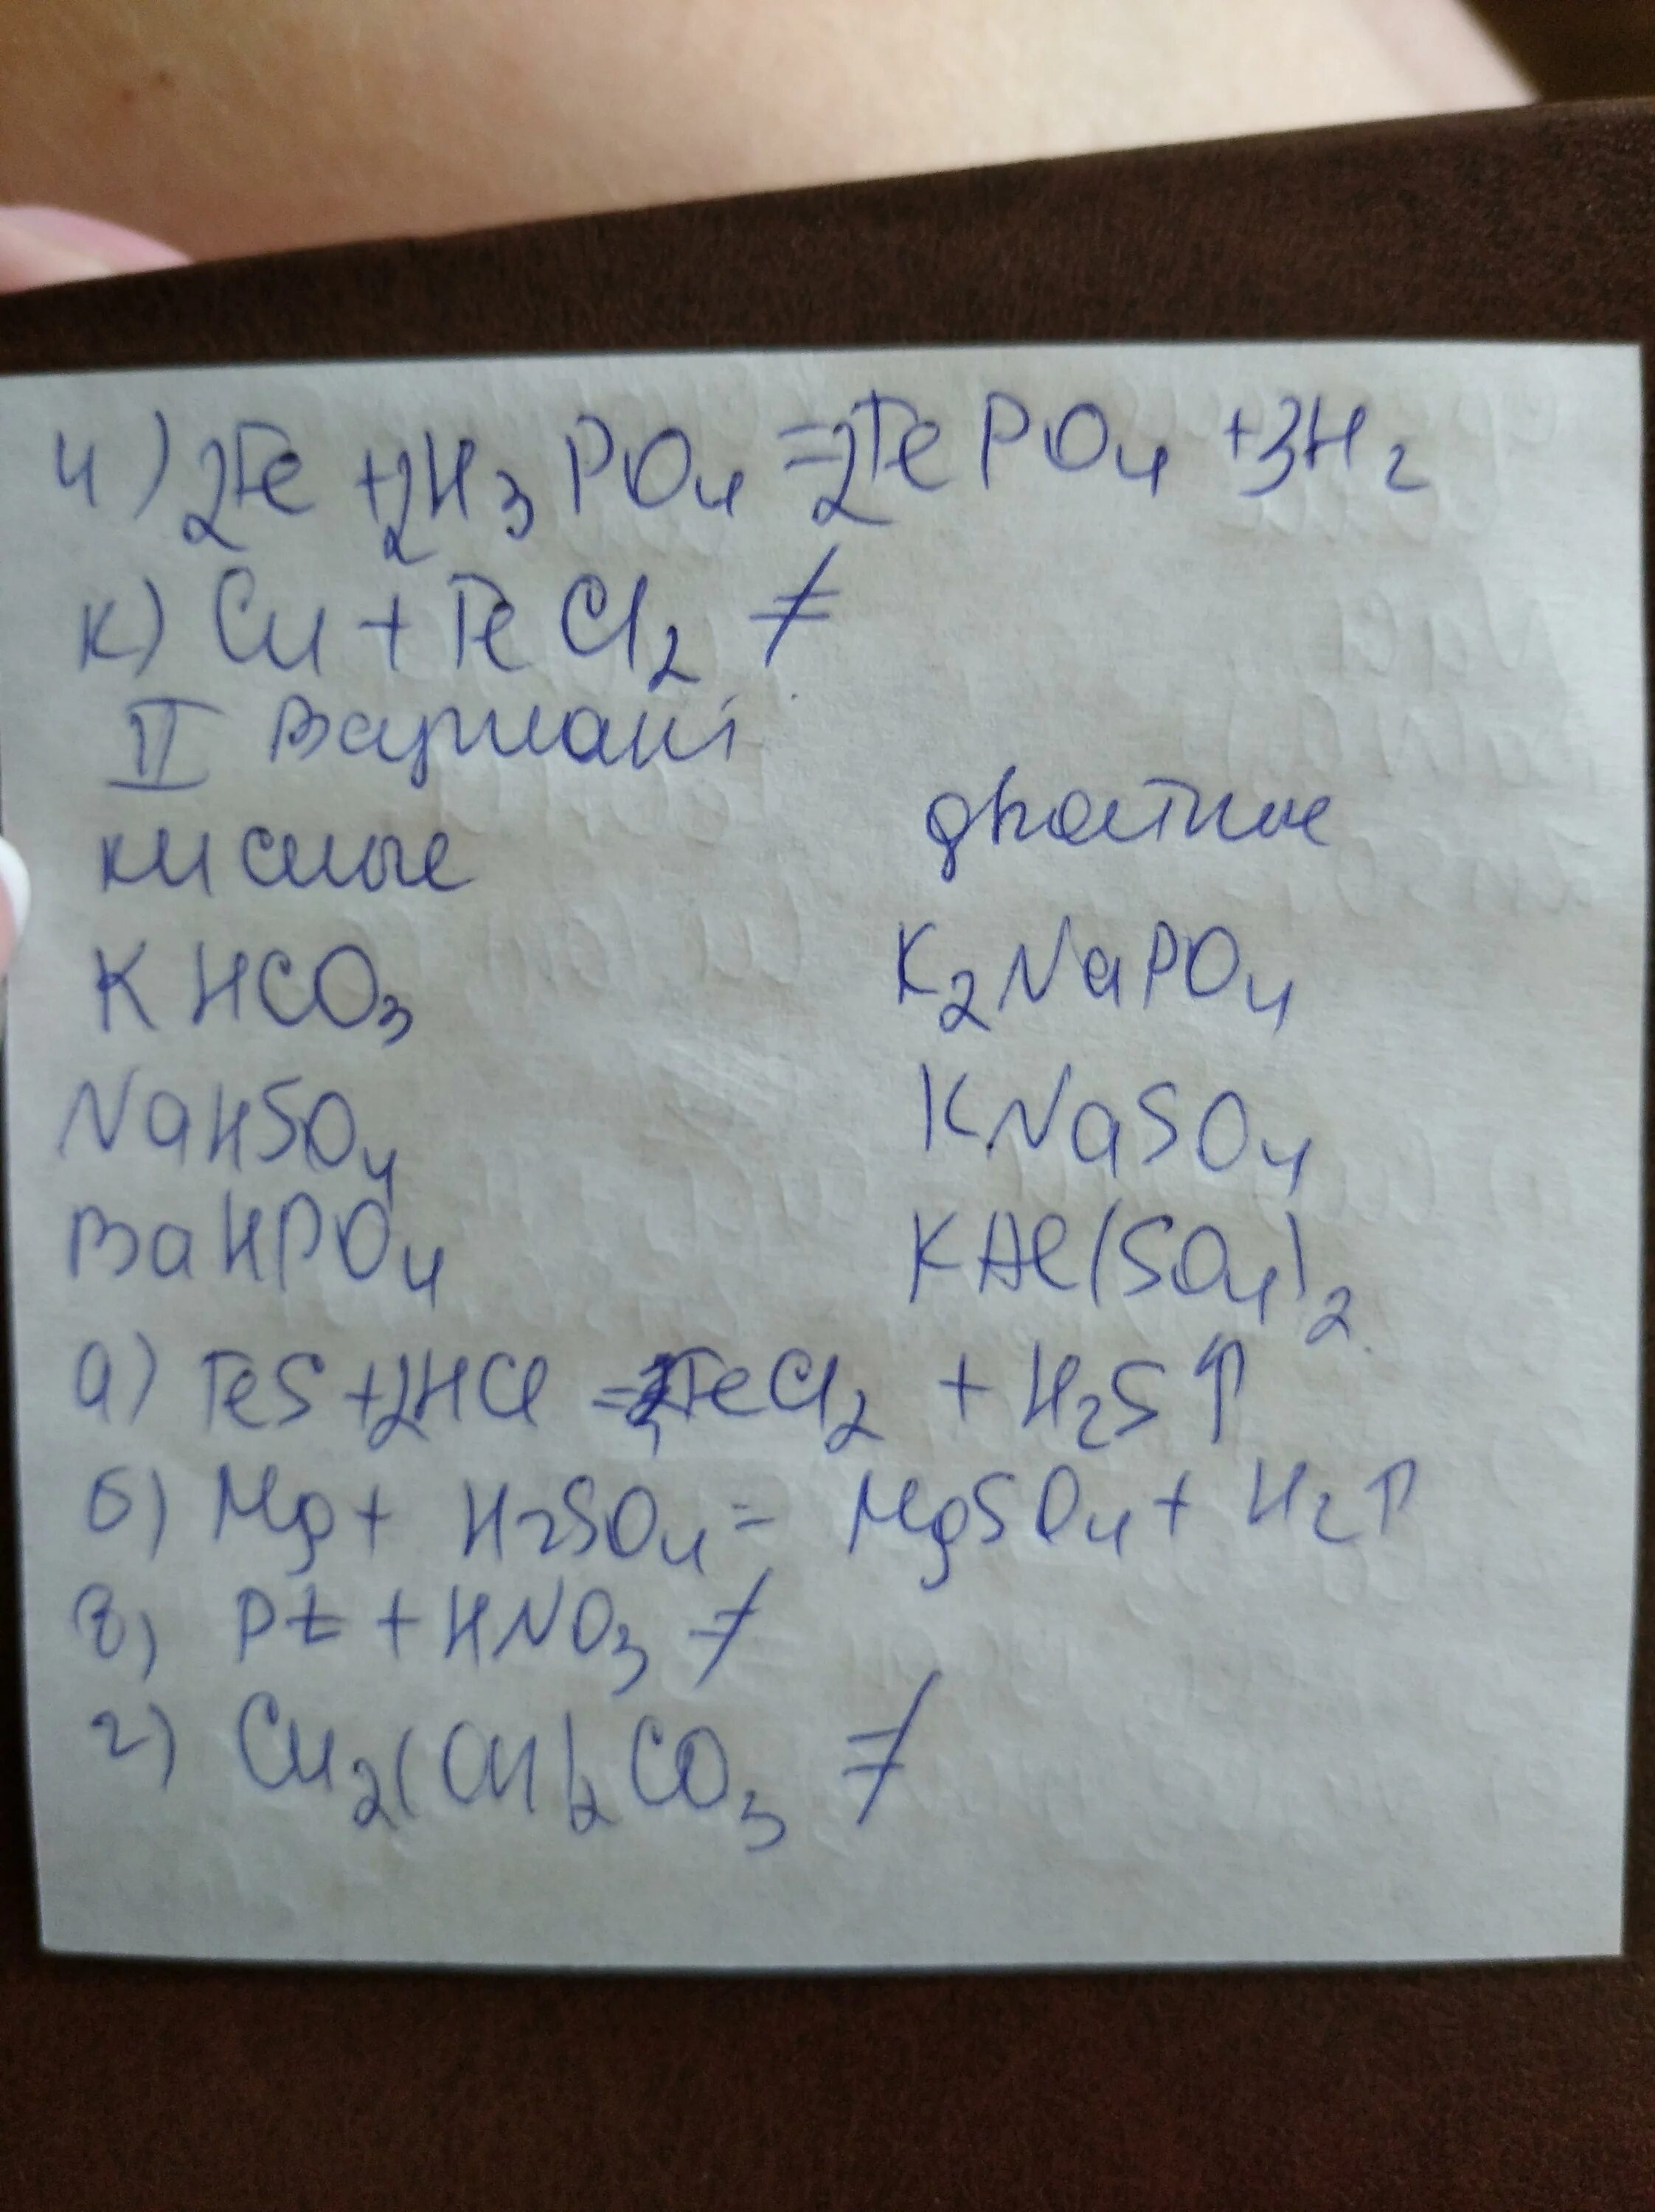 и) 2Fe + 2H₃PO₄ = 2FePO₄ + 3H₂
к) Cu + FeCl₂ ≠
II Вариант
кислые двойные
KHCO₃ K₂NaPO₄
NaHSO₄ KNaSO₄
BaHPO₄ KAl(SO₄)₂
а) FeS + 2HCl = FeCl₂ + H₂S↑
б) Mg + H₂SO₄ = MgSO₄ + H₂↑
в) Pt + HNO₃ ≠
г) Cu₂(OH)₂CO₃ ≠